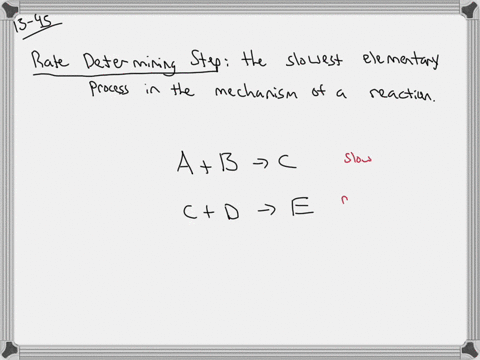 13-45
Rate Determining Step: the slowest elementary
Process in the mechanism of a reaction.
A + B → C slow
C + D → E